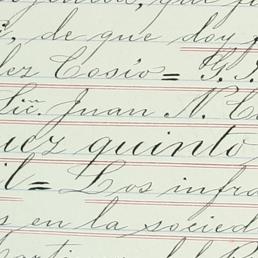 que
, de que doy
Cosío= G. J.
Lic. Juan N. C
uez quinto
il= Los infra
s en la socied